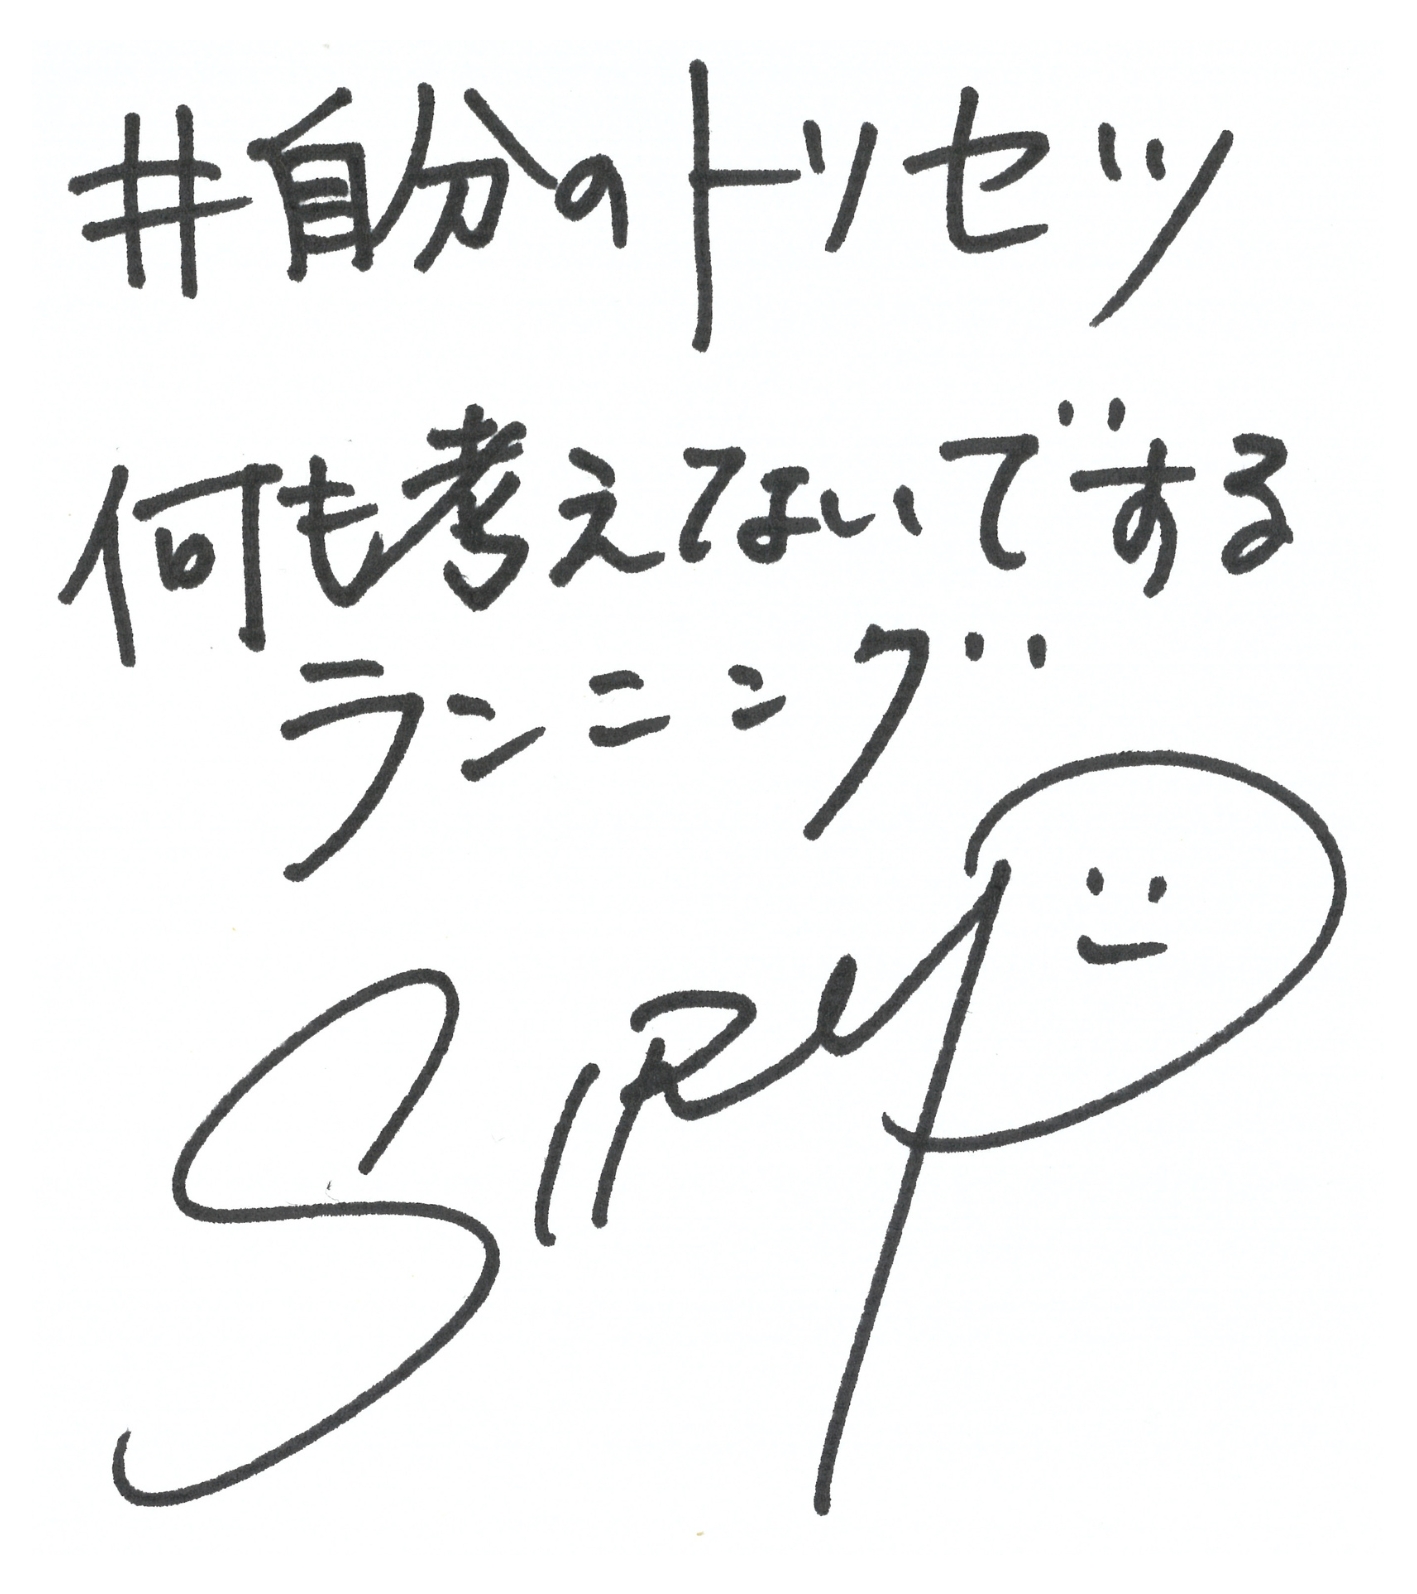 #自分のトリセツ
何も考えてないでする
ランニング
SIRUP